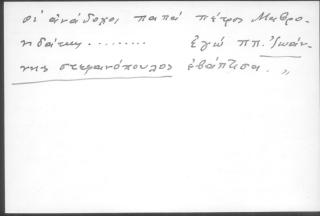 οἱ ἀνάδοχοι παπά πέτρος Μαυρο-
ηδάκης ......... ἐγώ ππ. Ἰωάν-
νης στεφανόπουλος ἐβάπτισα. "